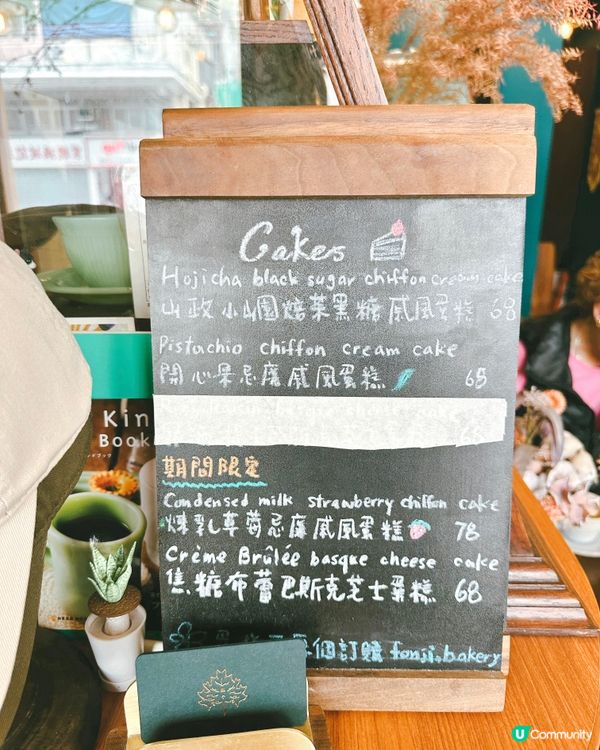 Cakes
Hojicha black sugar chiffon cream cake
山政小山園焙茶黑糖戚風蛋糕 68
Pistachio chiffon cream cake
開心果忌廉戚風蛋糕 68
期間限定
Condensed milk strawberry chiffon cake
煉乳草莓忌廉戚風蛋糕 78
Crème Brûlée basque cheese cake
焦糖布蕾巴斯克芝士蛋糕 68
個訂購 fonji.bakery
Kin
Book
U Community